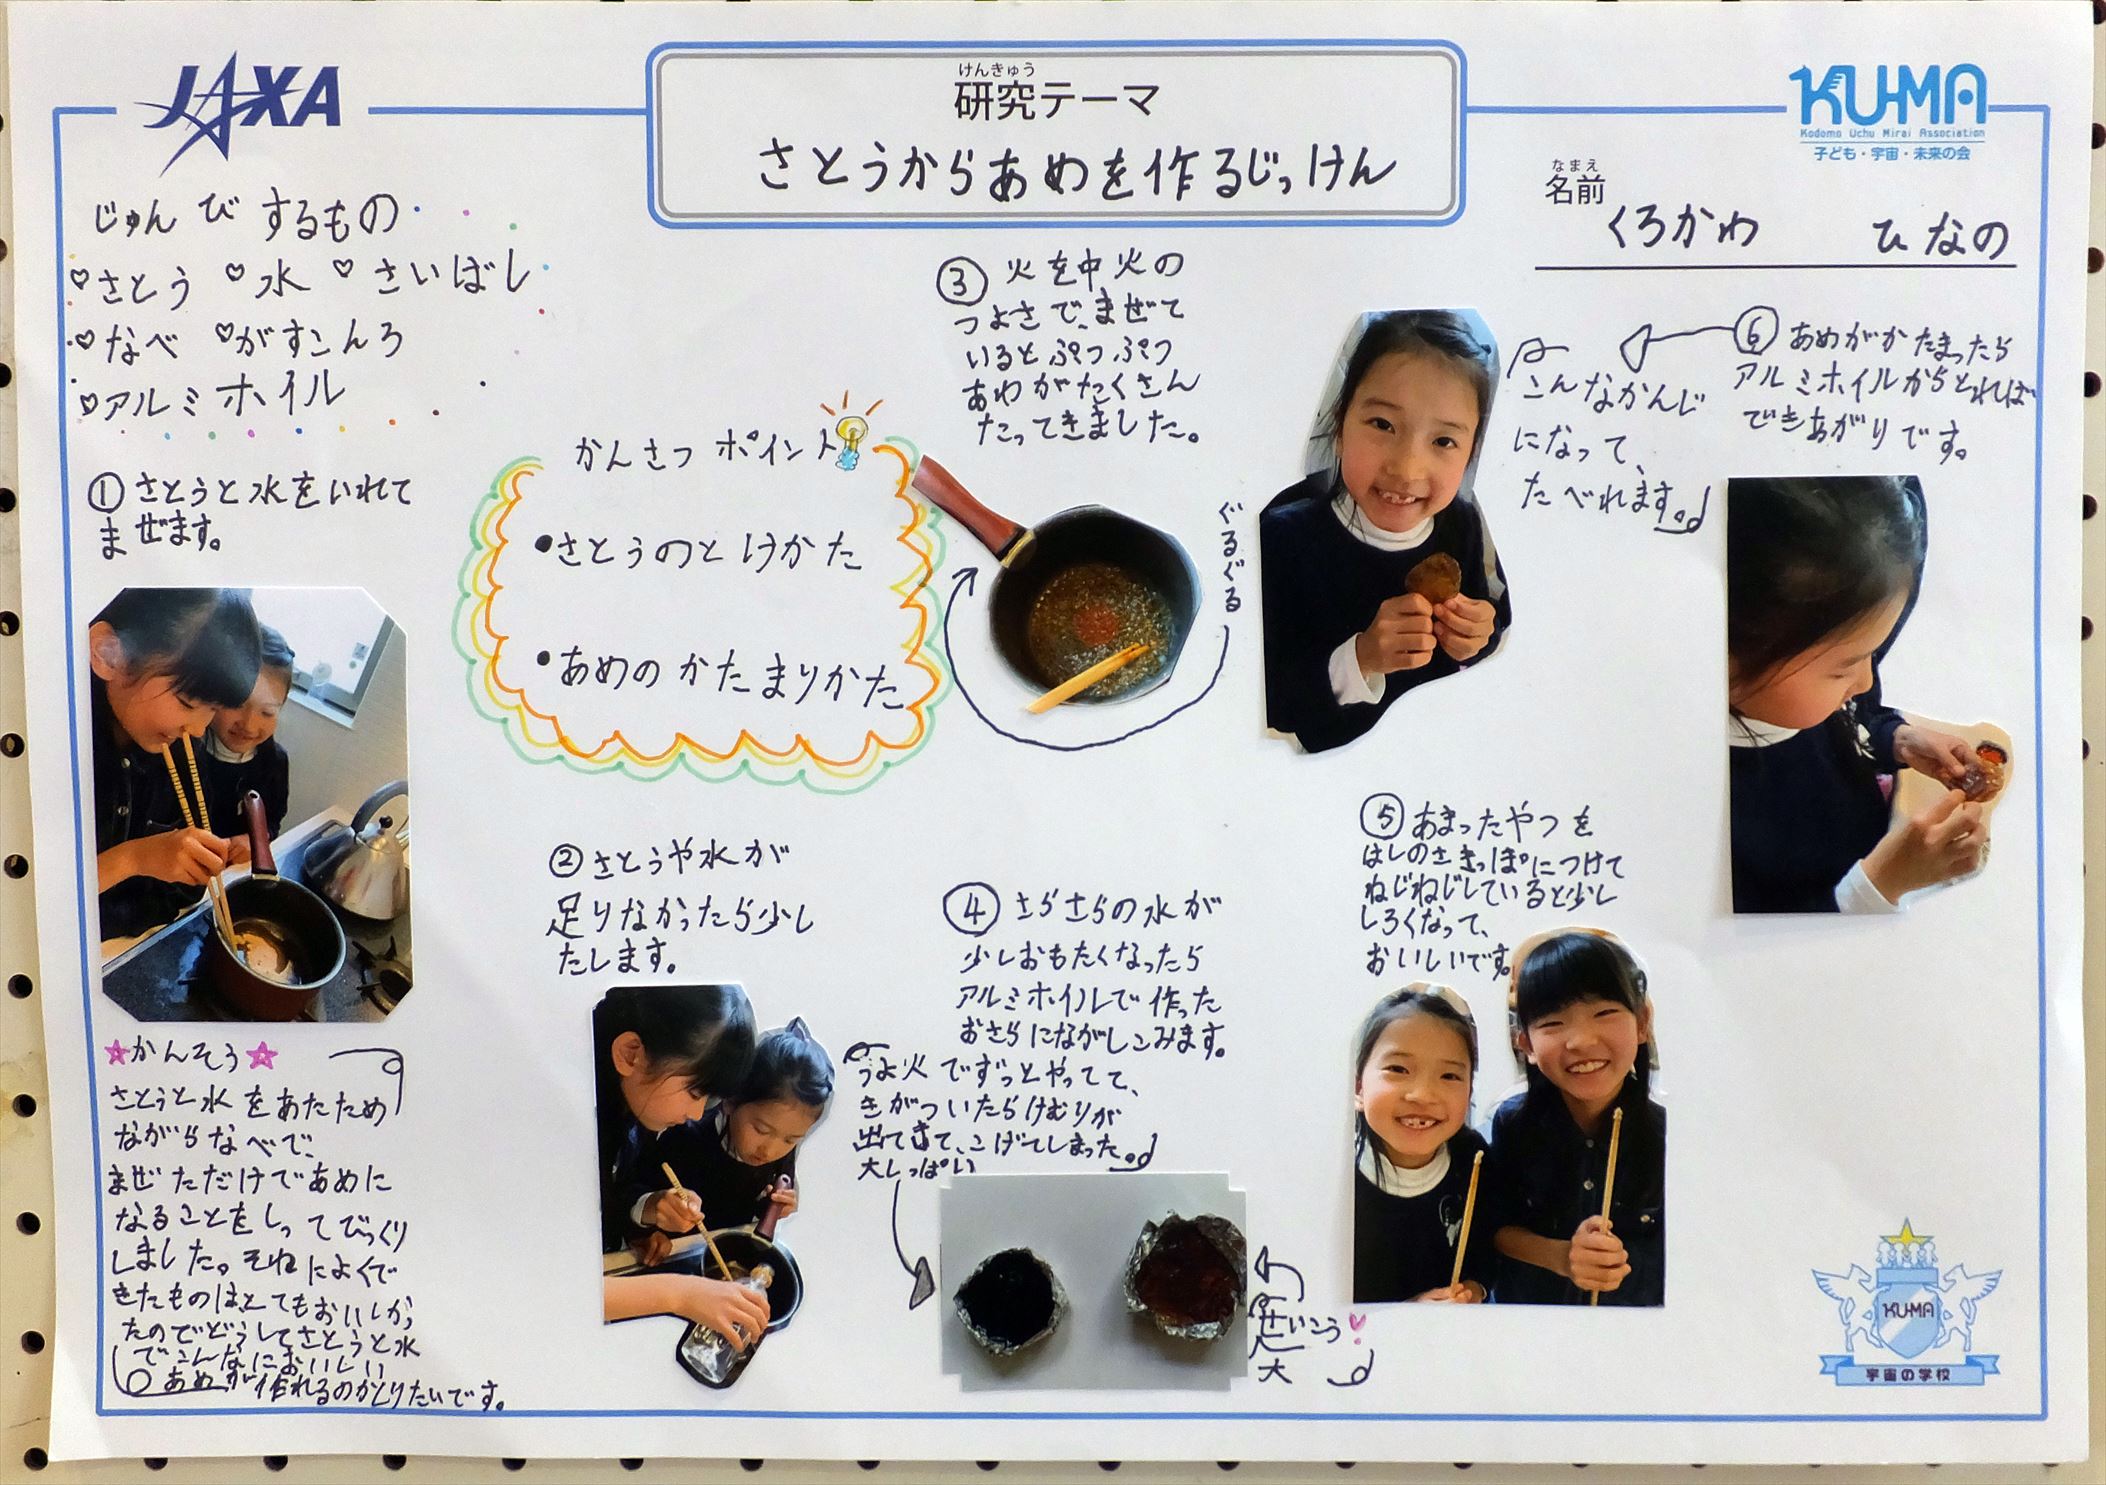 JAXA
けんきゅう
研究テーマ
さとうからあめを作るじっけん
KUMA
Kodomo Uchu Mirai Association
子ども・宇宙・未来の会
なまえ
名前
くろかわ ひなの
じゅんびするもの
♡さとう ♡水 ♡さいばし
♡なべ ♡がすこんろ
♡アルミホイル
①さとうと水をいれて
まぜます。
かんさつポイント
•さとうのとけかた
•あめのかたまりかた
②さとうや水が
足りなかったら少し
たします。
③火を中火の
つよさで、まぜて
いるとぷつぷつ
あわがたくさん
たってきました。
ぐるぐる
④さらさらの水が
少しおもたくなったら
アルミホイルで作った
おさらにながしこみます。
つよ火でずっとやってて、
きがついたらけむりが
出てきて、こげてしまった。
大しっぱい
せいこう
大
⑤あまったやつを
はしのさきっぽにつけて
ねじねじしていると少し
しろくなって、
おいしいです。
⑥あめがかたまったら
アルミホイルからとれば
できあがりです。
こんなかんじ
になって、
たべれます。
☆かんそう☆
さとうと水をあたため
ながらなべで、
まぜただけであめに
なることをしってびっくり
しました。それによくで
きたものは、とてもおいしかっ
たのでどうしてさとうと水
でこんなにおいしい
あめが作れるのかしりたいです。
KUMA
宇宙の学校